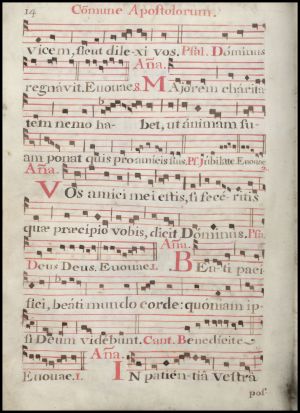 14 Cõmune Apostolorum.
vicem, sicut dile-xi vos. Psal. Dóminus
Aña.
regnávit. Euouae. 8. MAjorem charita
tem nemo ha- bet, ut ánimam su-
am ponat quis pro amicis suis. Ps. Jubilate. Euouae
Aña.
VOs amici mei estis, si fece-ritis
quæ præcipio vobis, dicit Dominus. Psa.
Aña.
Deus Deus. Euouae. 1. BEa-ti paci
fici, beáti mundo corde: quóniam ip-
si Deum vidébunt. Cant. Benedicite
Aña.
Euouae. 1. IN patien-tiâ vestra
pos